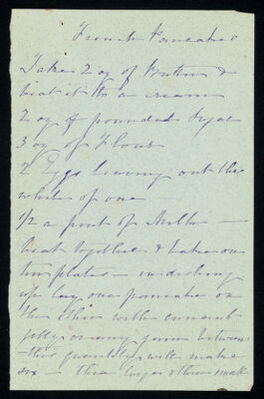 French Pancakes
Take 2 oz of Butter &
beat it to a cream
2 oz of pounded Sugar
3 oz of Flour
2 Eggs leaving out the
white of one
1/2 a pint of Milk —
beat together & bake on
tin plates — in dishing
up lay one pancake on
the other with currant
jelly or any jam between
— this quantity will make
six — three large & three small